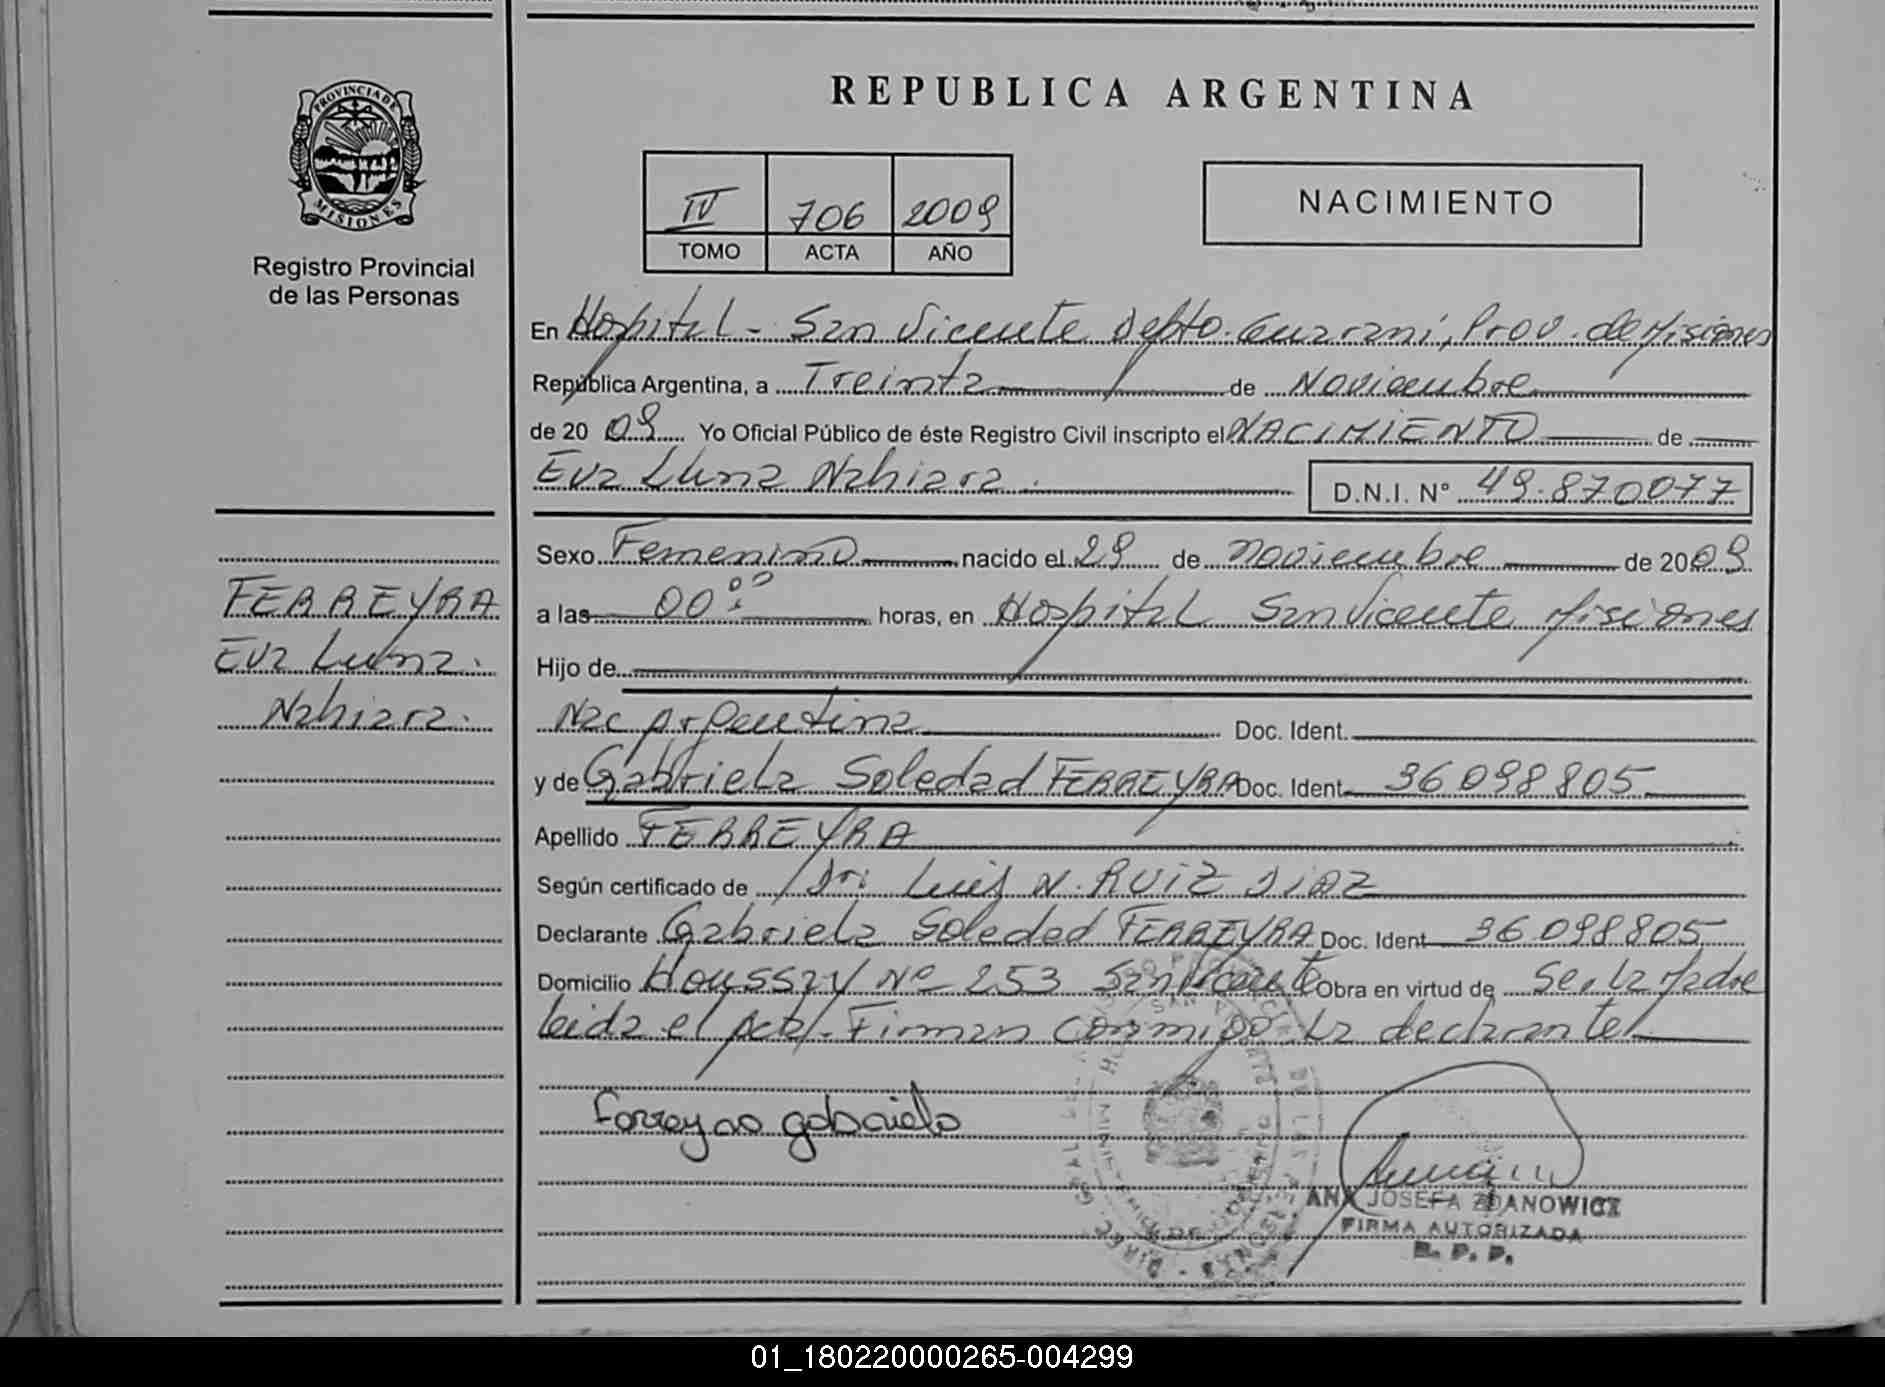 PROVINCIA DE
MISIONES
Registro Provincial
de las Personas
FERREYRA
Eva Luna.
Nahiara.
REPUBLICA ARGENTINA
IV 706 2009
TOMO ACTA AÑO
NACIMIENTO
En Hospital - San Vicente Depto. Guaraní, Prov. de Misiones
República Argentina, a Treinta de Noviembre
de 20 09 Yo Oficial Público de éste Registro Civil inscripto el NACIMIENTO de
Eva Luna Nahiara. D.N.I. Nº 49.870077
Sexo Femenino nacido el 29 de noviembre de 20 09
a las 00:00 horas, en Hospital San Vicente Misiones
Hijo de
Nac Argentina Doc. Ident.
y de Gabriela Soledad FERREYRA Doc. Ident. 36098805
Apellido FERREYRA
Según certificado de Dr. Luis N. RUIZ DIAZ
Declarante Gabriela Soledad FERREYRA Doc. Ident 36098805
Domicilio Houssay Nº 253 San Vicente Obra en virtud de Ser la Madre
leida el Acta. Firman conmigo la declarante
Ferreyra gabriela
ANA JOSEFA ZDANOWICZ
FIRMA AUTORIZADA
R. P. P.
01_180220000265-004299